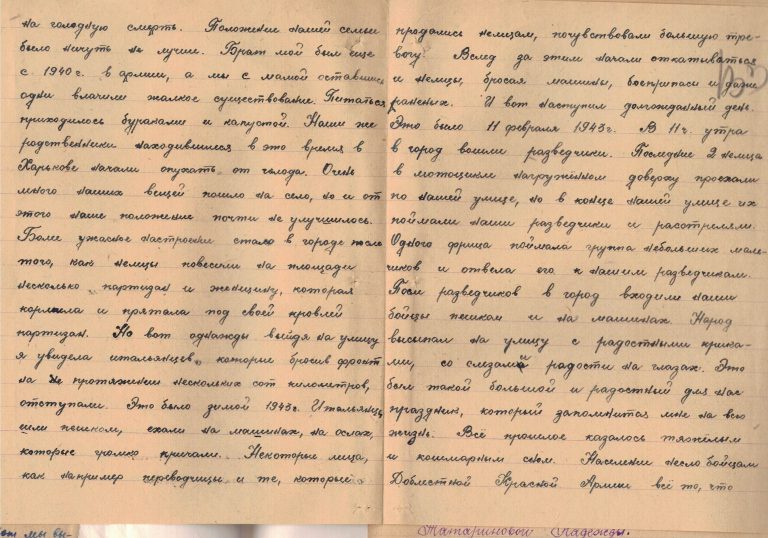 на голодную смерть. Положение нашей семьи
было ничуть не лучше. Брат мой был еще
с 1940 г. в армии, а мы с мамой остались
одни влачили жалкое существование. Питаться
приходилось бураками и капустой. Наши же
родственники находившиеся в это время в
Харькове начали опухать от голода. Очень
много наших вещей пошло на село, но и от
этого наше положение почти не улучшилось.
Более ужасное настроение стало в городе после
того, как немцы повесили на площади
несколько партизан и женщину, которая
кормила и прятала под своей кровлей
партизан. Но вот однажды выйдя на улицу
я увидела итальянцев, которые бросив фронт
на протяжении нескольких сот километров,
отступали. Это было зимой 1943 г. Итальянцы
шли пешком, ехали на машинах, на ослах,
которые громко кричали. Некоторые лица,
как например переводчицы и те, которые
продались немцам, почувствовали большую тре-
вогу. Вслед за этим начали откатываться
и немцы, бросая машины, боеприпасы и даже
раненых. И вот наступил долгожданный день.
Это было 11 февраля 1943 г. В 11 ч. утра
в город вошли разведчики. Последние 2 немца
в мотоцикле нагружённом доверху проехали
по нашей улице, но в конце нашей улице их
поймали наши разведчики и расстреляли.
Одного фрица поймала группа небольших маль-
чиков и отвела его к нашим разведчикам.
После разведчиков в город входили наши
бойцы пешком и на машинах. Народ
высыпал на улицу с радостными крика-
ми, со слезами радости на глазах. Это
был такой большой и радостный для нас
праздник, который запомнится мне на всю
жизнь. Всё прошлое казалось тяжёлым
и кошмарным сном. Население несло бойцам
Доблестной Красной Армии всё то, что
мы вы-
Татариновой Надежды.